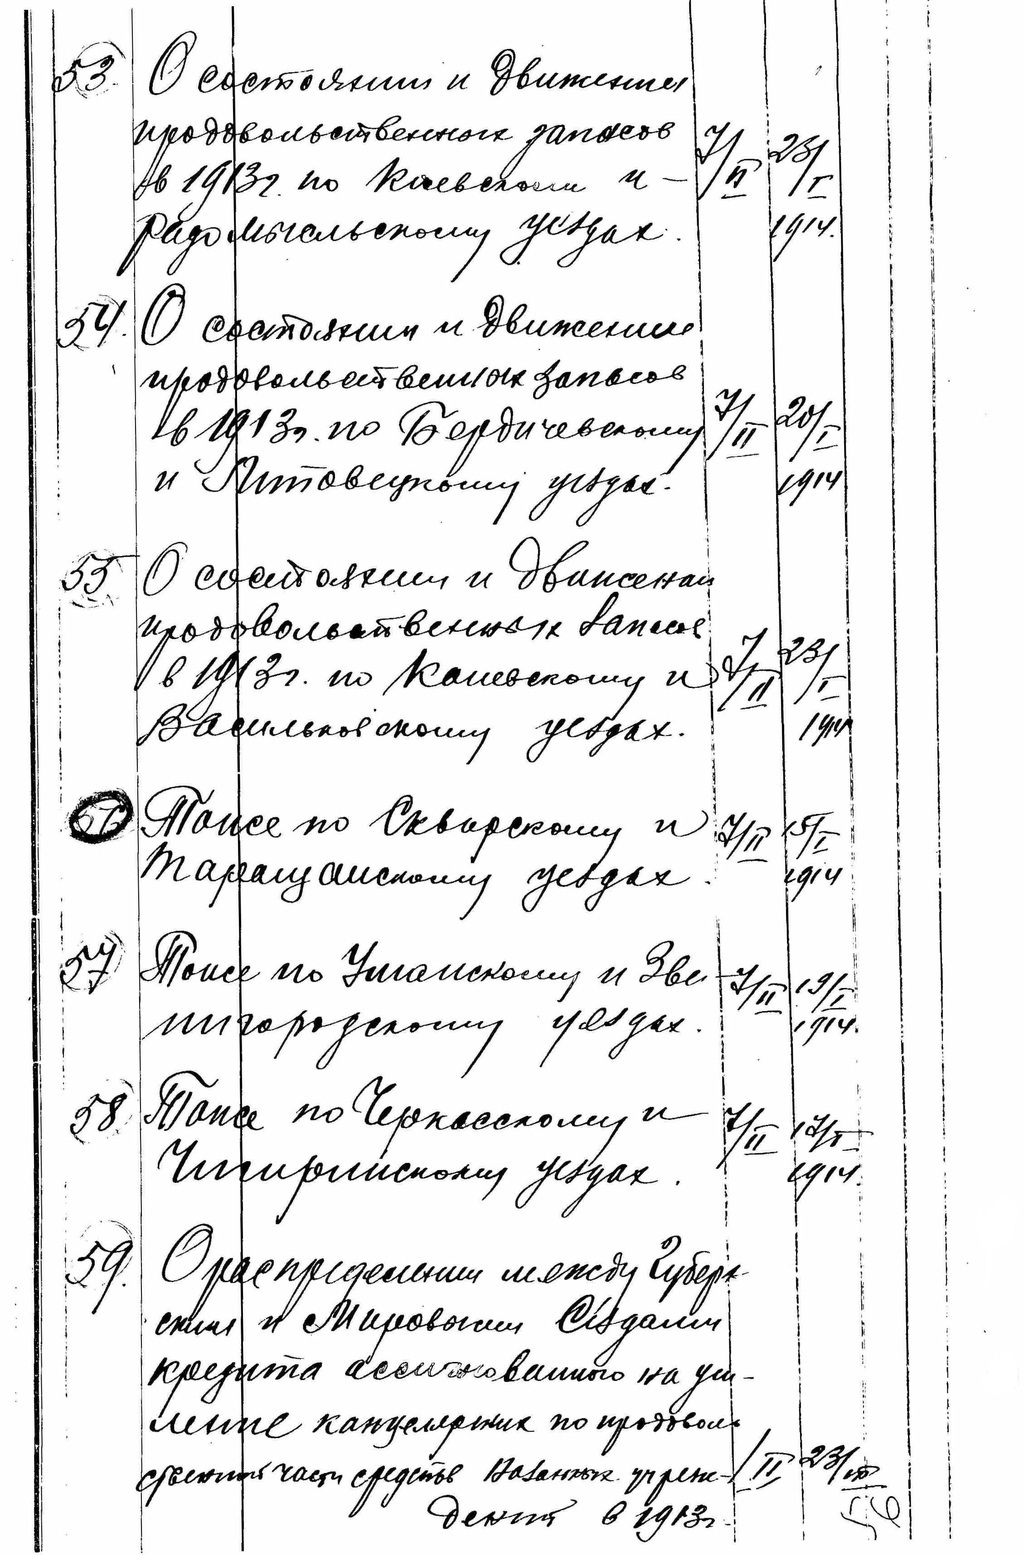 53. О состоянии и движении
продовольственных запасов 7/II 23/I
в 1913г. по Киевскому и
Радомысльскому уездах. 1914.
54. О состоянии и движении
продовольственных запасов
в 1913г. по Бердичевскому 7/II 20/I
и Липовецкому уездах. 1914
55 О состоянии и движении
продовольственных запасов
в 1913г. по Каневскому и 7/II 23/I
Васильковскому уездах. 1914
56 Тоже по Сквирскому и 7/II 15/I
Таращанскому уездах. 1914
57 Тоже по Уманскому и Зве- 7/II 19/I
нигородскому уездах. 1914.
58. Тоже по Черкасскому и 7/II 17/I
Чигиринскому уездах. 1914.
59. О распределении между Губерн-
ским и Мировыми Съездами
кредита ассигнованного на уси-
ление канцелярских по продоволь
ственной части средств названных учреж- /II 23/III
дений в 1913г.
56